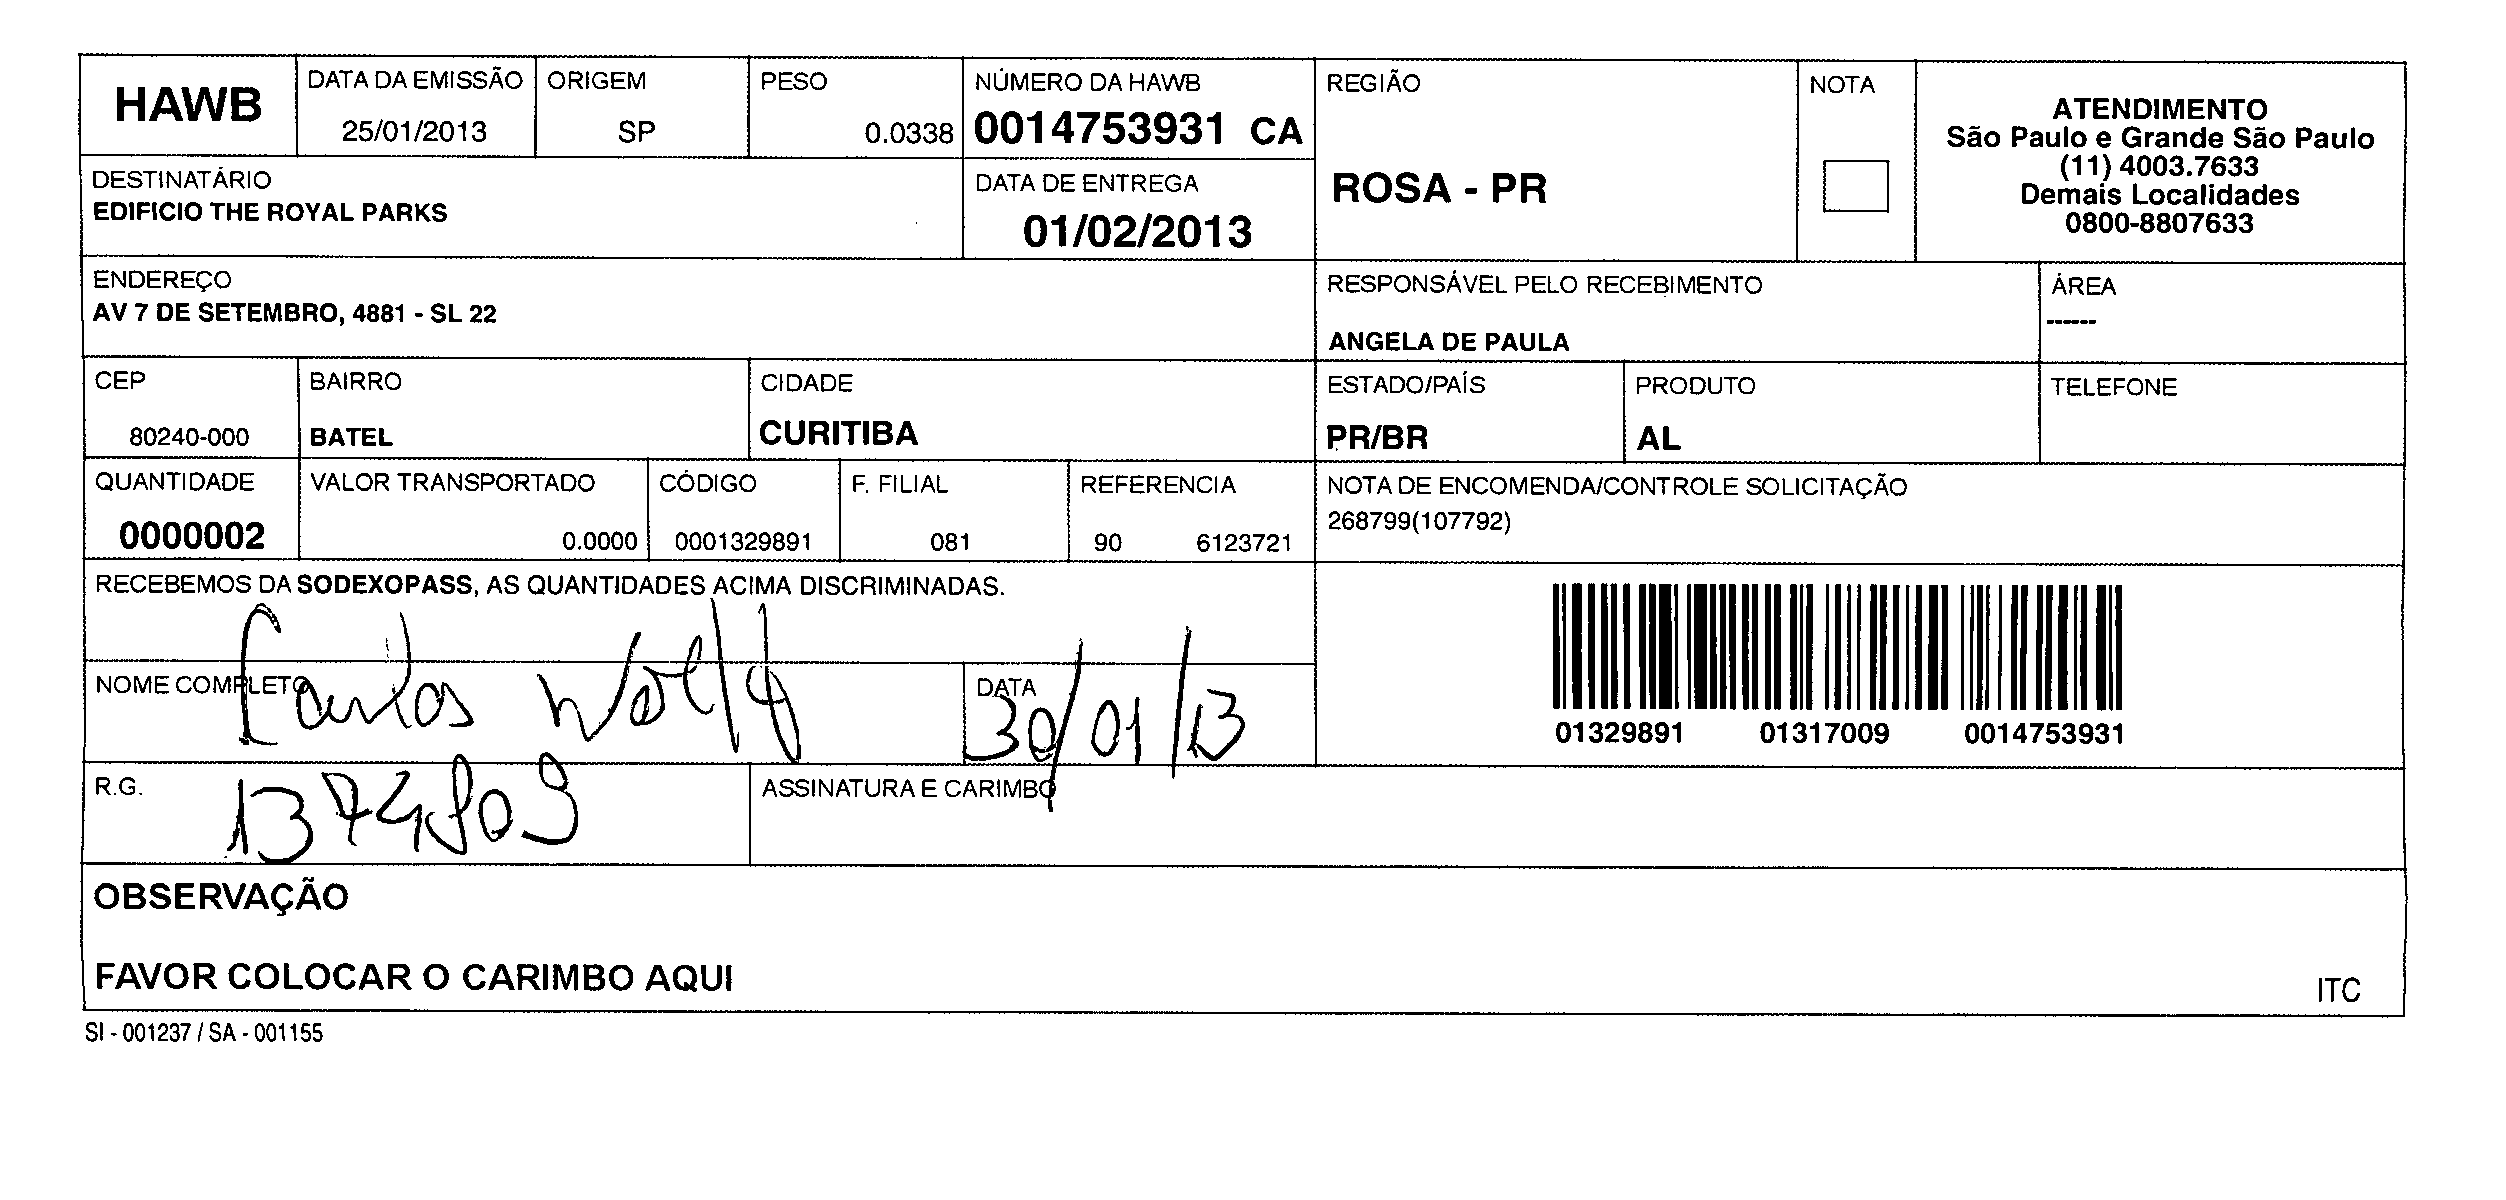 HAWB
DATA DA EMISSÃO
25/01/2013
ORIGEM
SP
PESO
0.0338
NÚMERO DA HAWB
0014753931 CA
REGIÃO
ROSA - PR
NOTA
ATENDIMENTO
São Paulo e Grande São Paulo
(11) 4003.7633
Demais Localidades
0800-8807633
DESTINATÁRIO
EDIFICIO THE ROYAL PARKS
DATA DE ENTREGA
01/02/2013
ENDEREÇO
AV 7 DE SETEMBRO, 4881 - SL 22
RESPONSÁVEL PELO RECEBIMENTO
ANGELA DE PAULA
ÁREA
------
CEP
80240-000
BAIRRO
BATEL
CIDADE
CURITIBA
ESTADO/PAÍS
PR/BR
PRODUTO
AL
TELEFONE
QUANTIDADE
0000002
VALOR TRANSPORTADO
0.0000
CÓDIGO
0001329891
F. FILIAL
081
REFERENCIA
90 6123721
NOTA DE ENCOMENDA/CONTROLE SOLICITAÇÃO
268799(107792)
RECEBEMOS DA SODEXOPASS, AS QUANTIDADES ACIMA DISCRIMINADAS.
NOME COMPLETO
Carlos
DATA
30/01/13
01329891 01317009 0014753931
R.G.
ASSINATURA E CARIMBO
OBSERVAÇÃO
FAVOR COLOCAR O CARIMBO AQUI
ITC
SI - 001237 / SA - 001155